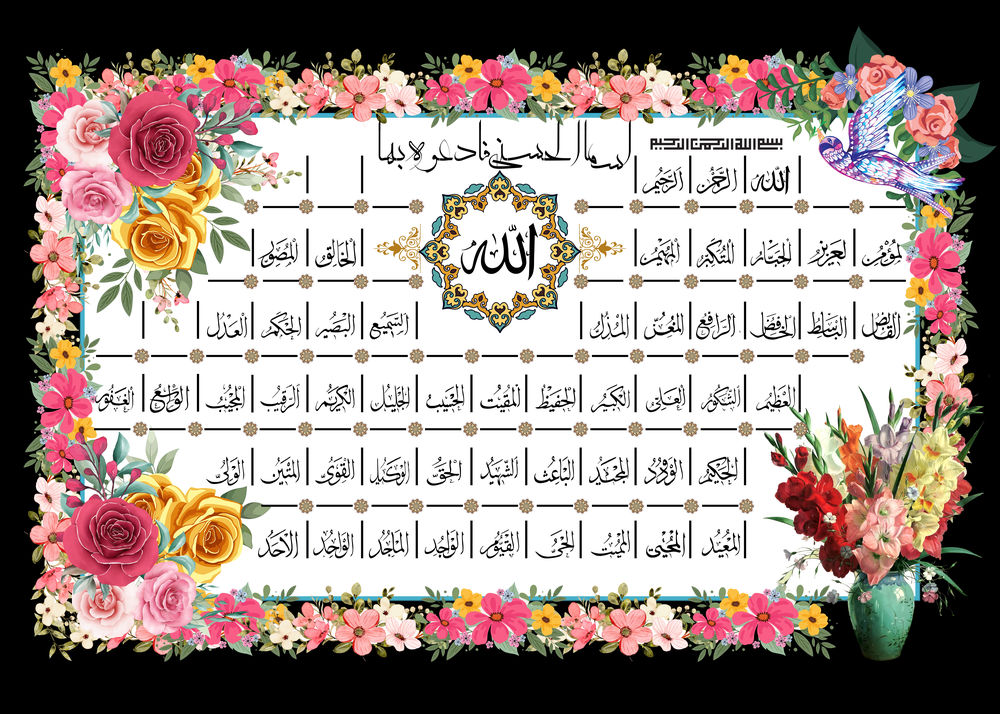 بسم الله الرحمن الرحيم
اسما الحسنى فادعوه بها
الله الرحمن الرحيم
الله
المؤمن العزيز الجبار المتكبر المهيمن الخالق المصور
القابض الباسط الخافض الرافع المعز المذل السميع البصير الحكم العدل
العظيم الشكور العلي الكبير الحفيظ المقيت الحسيب الجليل الكريم الرقيب المجيب الواسع الغفور
الحكيم الودود المجيد الباعث الشهيد الحق الوكيل القوي المتين الولي
المعيد المحيي المميت الحي القيوم الواجد الماجد الواحد الاحد